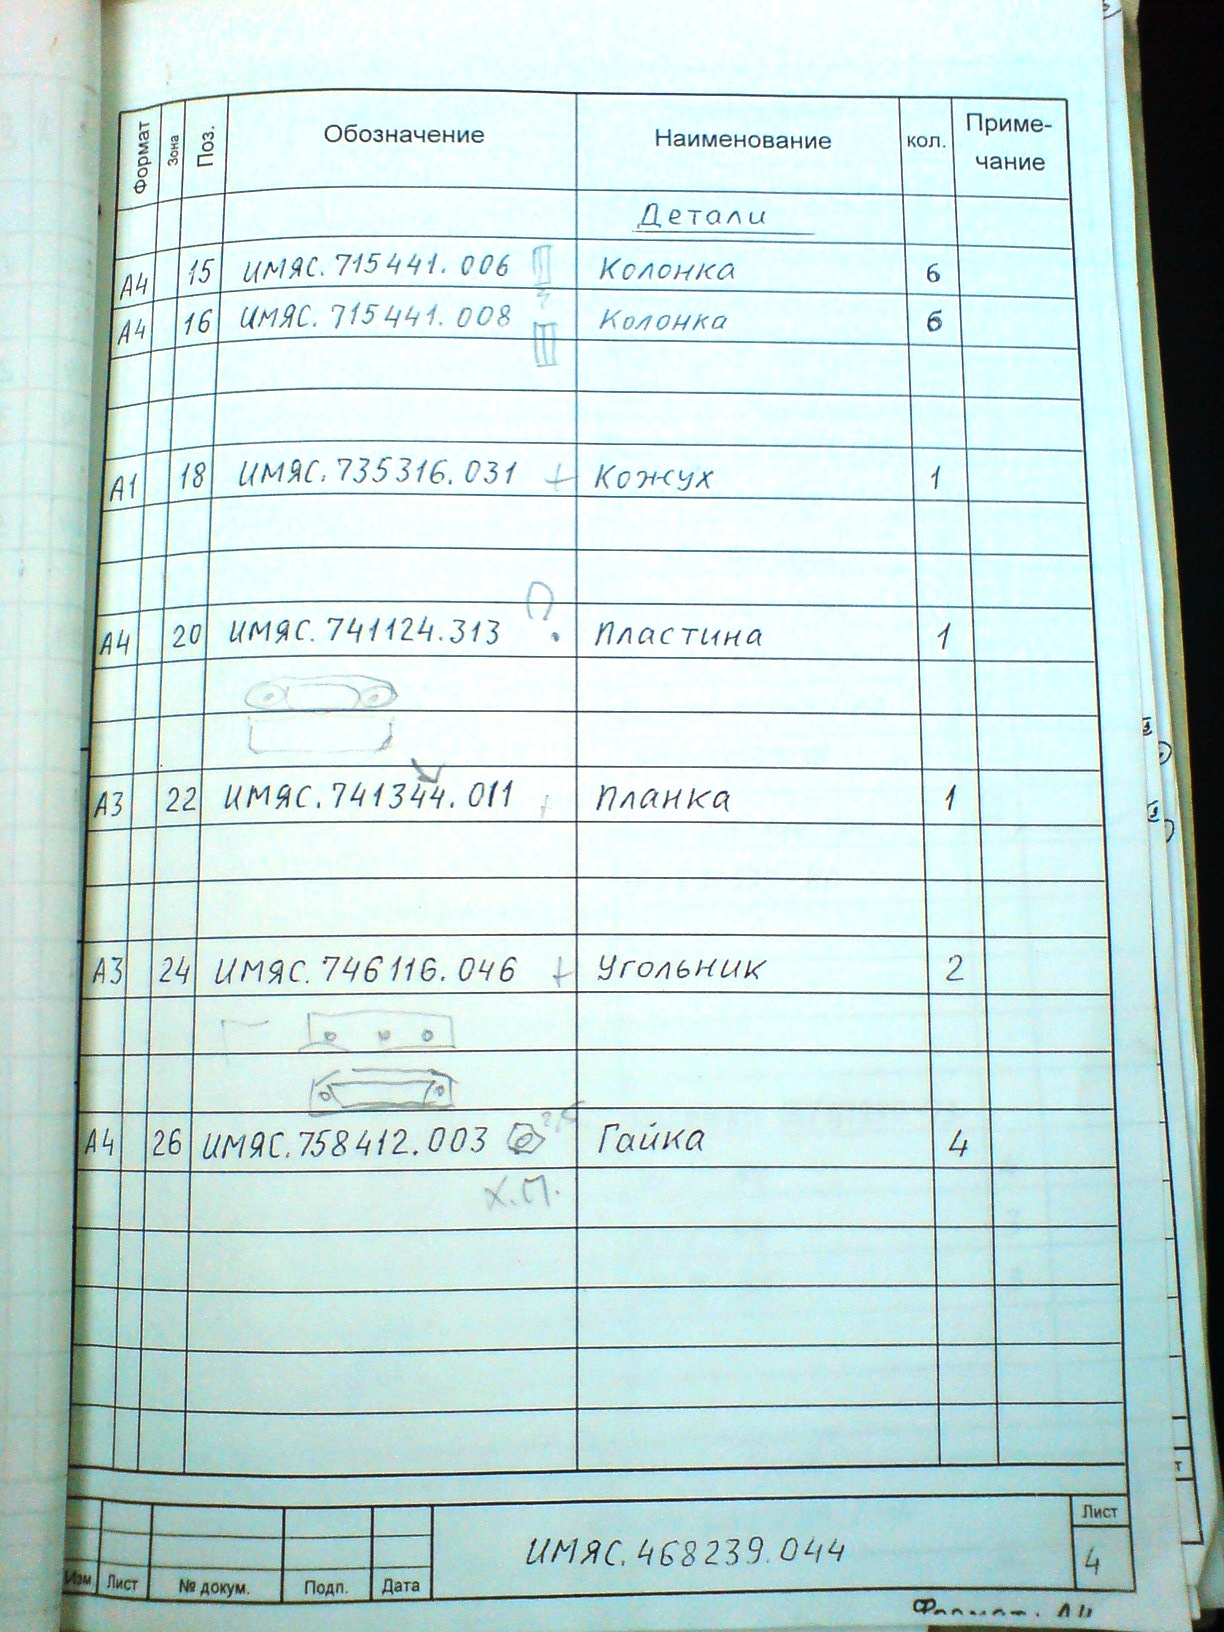 Формат Зона Поз. Обозначение Наименование кол. Приме-
чание
Детали
А4 15 ИМЯС.715441.006 Колонка 6
А4 16 ИМЯС.715441.008 Колонка 6
А1 18 ИМЯС.735316.031 + Кожух 1
А4 20 ИМЯС.741124.313 ? Пластина 1
А3 22 ИМЯС.741344.011 + Планка 1
А3 24 ИМЯС.746116.046 + Угольник 2
А4 26 ИМЯС.758412.003 Гайка 4
Х.П.
ИМЯС.468239.044
Лист
4
Изм Лист № докум. Подп. Дата
Формат: А4